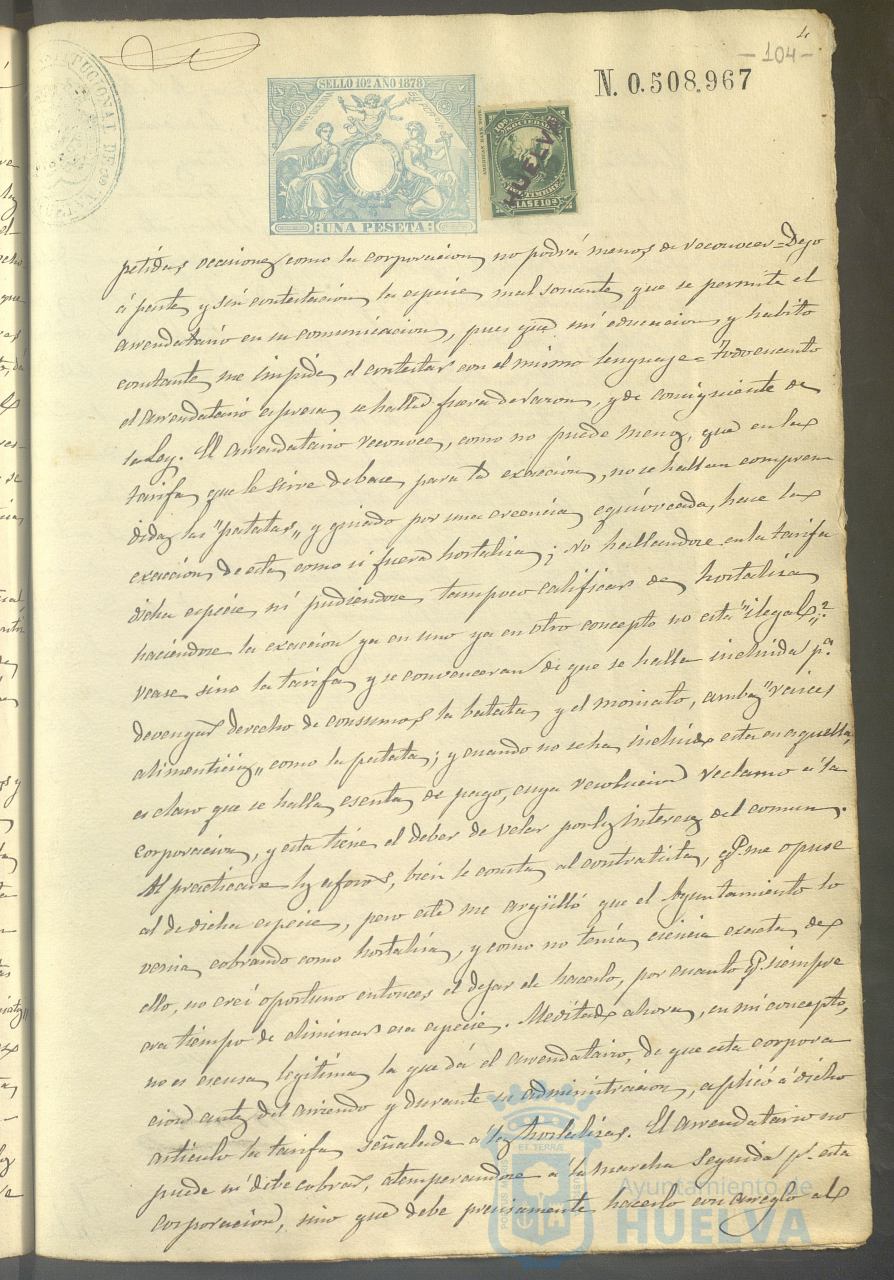 4
-104-
N. 0.508.967
SELLO 10º AÑO 1878
UNA PESETA
AMERICAN BANK NOTE
SOCIEDAD
TIMBRE
CLASE 10ª
HUELVA
TUCIONAL DE
petidas ocasiones como la corporacion no podrá menos de reconocer = Dejo
á parte y sin contestacion la especie mal sonante que se permite el
arrendatario en su comunicacion, pues que mi educacion y habito
constante me impide el contestar con el mismo lenguaje = Todo cuanto
el arrendatario espresa se halla fuera de razon, y de consiguiente de
la Ley. El arrendatario reconoce, como no puede menos, que en las
tarifas que le sirve de base para la exaccion, no se hallan compren
didas las "patatas" y guiado por una creencia equivocada, hace la
exaccion de esta como si fuera hortaliza; No hallandose en la tarifa
dicha especie ni pudiendose tampoco calificar de hortaliza
haciendose la exaccion ya en uno ya en otro concepto no esta "ilegal"?
vease sino la tarifa y se convenceran de que se halla incluida pª
devengar derecho de consumos la batata y el moniato, ambas "raices
alimenticias" como la patata; y cuando no se ha incluido esta en aquella,
es claro que se halla esenta de pago, cuya resolucion reclamo á la
corporacion, y esta tiene el deber de velar por los intereses del comun.
Al practicarse los aforos, bien le consta al contratista, q.e me opuse
al de dicha especie, pero este me argülló que el Ayuntamiento lo
venia cobrando como hortaliza, y como no tenia ciencia exacta de
ello, no creí oportuno entonces el dejar de hacerlo, por cuanto q.e siempre
era tiempo de eliminar esa especie. Meditado ahora, en mi concepto,
no es escusa legitima la que dá el arrendatario, de que esta corpora
cion antes del arriendo y durante su administracion, aplicó á dicho
articulo la tarifa señalada á las hortalizas. El arrendatario no
puede ni debe cobrar, atemperandose á la marcha seguida p.r esta
corporacion, sino que debe precisamente hacerlo con arreglo al
Ayuntamiento de
HUELVA